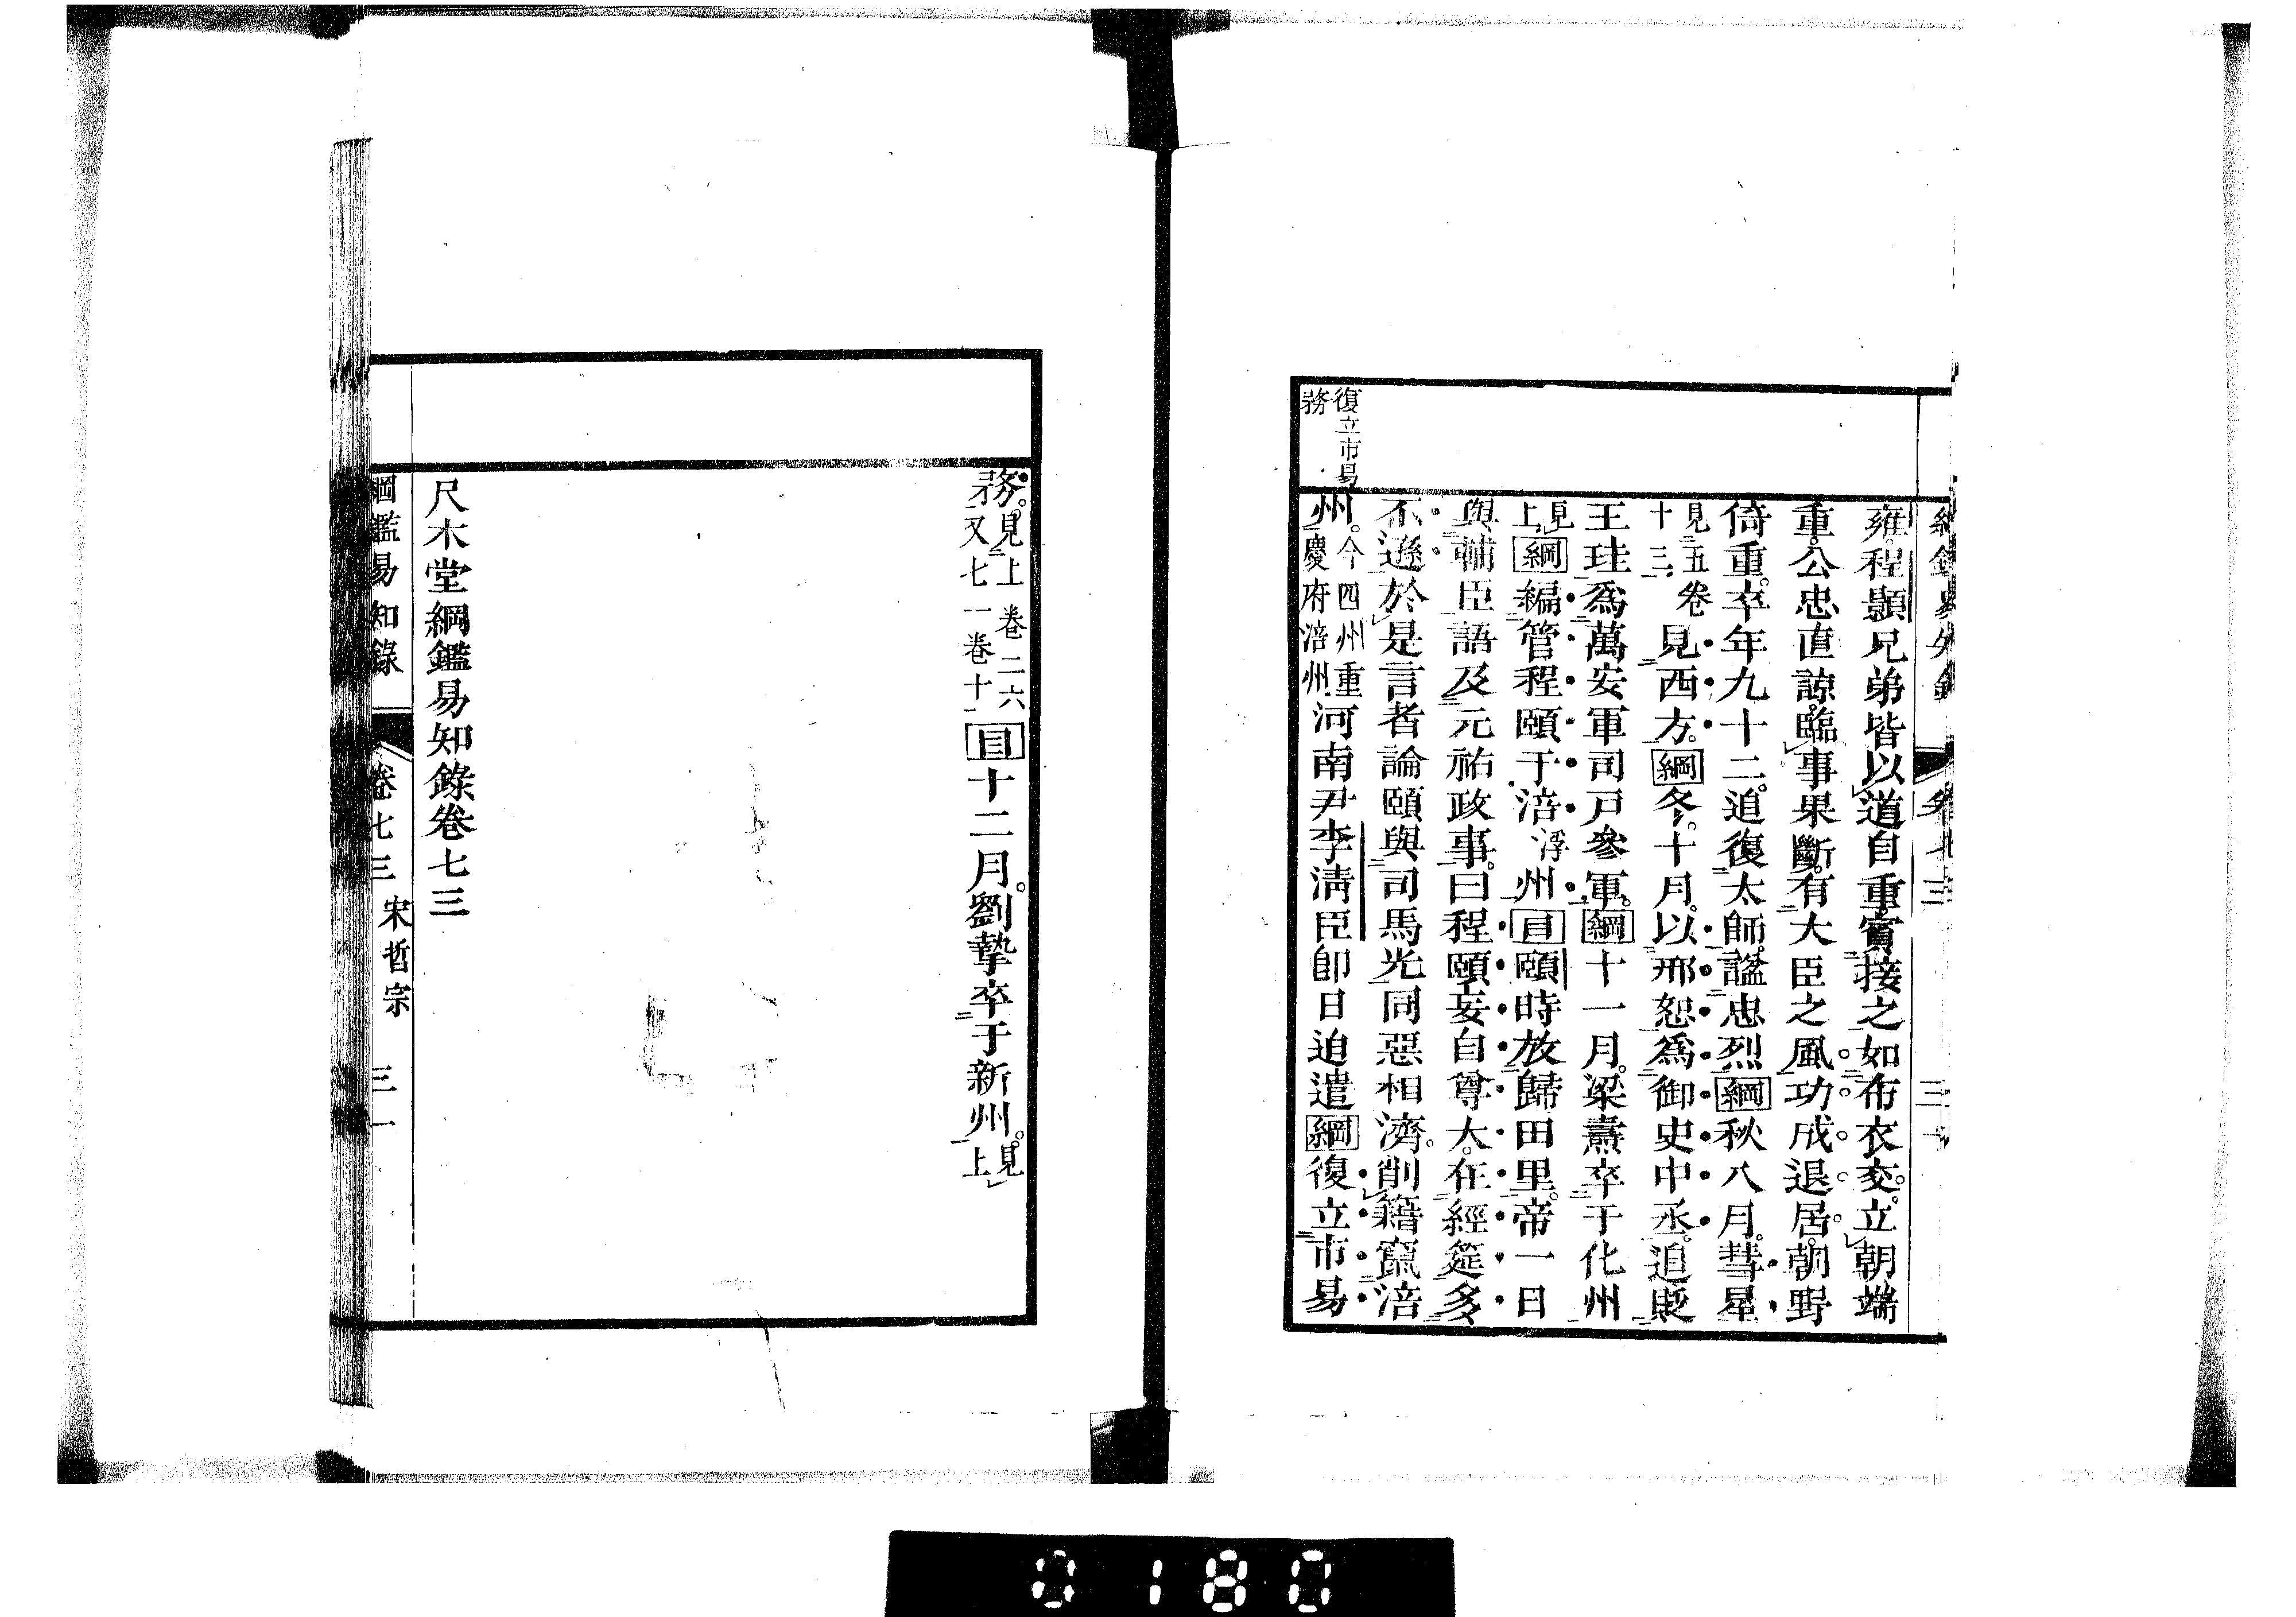 雍。程顥兄弟皆以道自重。賓接之如布衣交。立朝端
重。公忠直諒。臨事果斷。有大臣之風。功成退居。朝野
倚重。卒年九十二。追復太師。謚忠烈。綱秋八月。彗星
見五卷十三見西方。綱冬。十月。以邢恕爲御史中丞。追貶
王珪爲萬安軍司戸參軍。綱十一月。梁燾卒于化州
見上綱編管程頤于涪浮州目頤時放歸田里。帝一日
與輔臣語及元祐政事。曰程頤妄自尊大。在經筵多
不遜。於是言者論頤與司馬光同惡相濟。削籍竄涪
州。今四州重慶府涪州河南尹李清臣卽日迫遣綱復立市易
復立市易務
務。見上卷二六又七一卷十目十二月。劉摯卒于新州。見上
尺木堂綱鑑易知錄卷七三
綱鑑易知錄 卷七三 宋哲宗 三一
0180